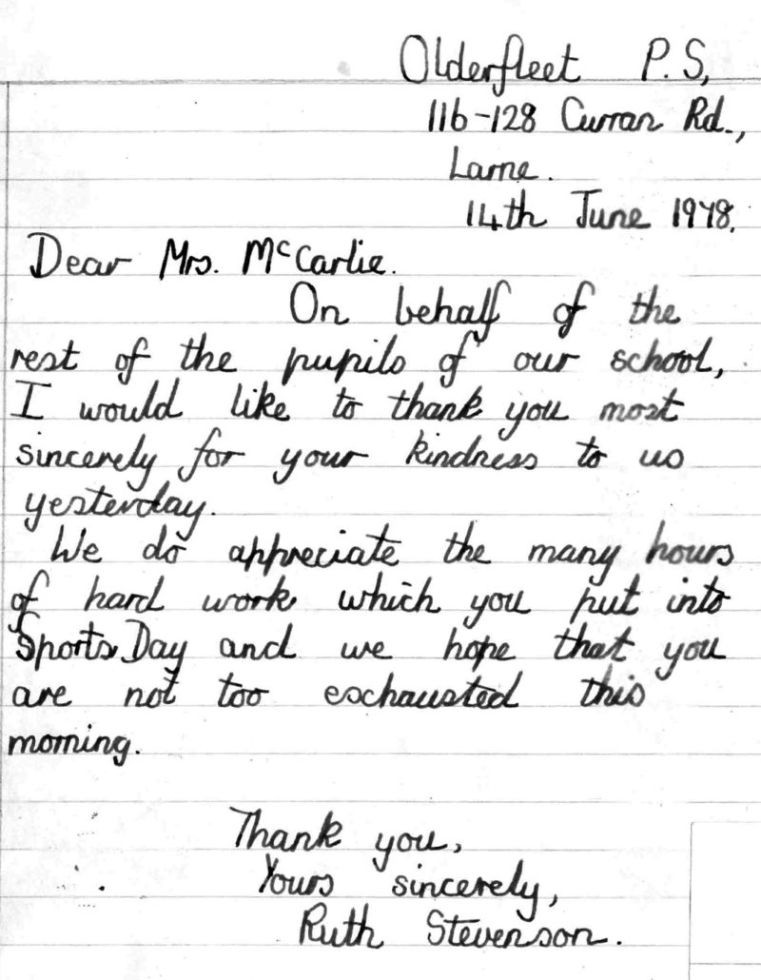 Olderfleet P.S,
116-128 Curran Rd.,
Larne.
14th June 1978.
Dear Mrs. McCarlie.
On behalf of the
rest of the pupils of our school,
I would like to thank you most
sincerely for your kindness to us
yesterday.
We do appreciate the many hours
of hard work which you put into
Sports Day and we hope that you
are not too exchausted this
morning.
Thank you,
Yours sincerely,
Ruth Stevenson.